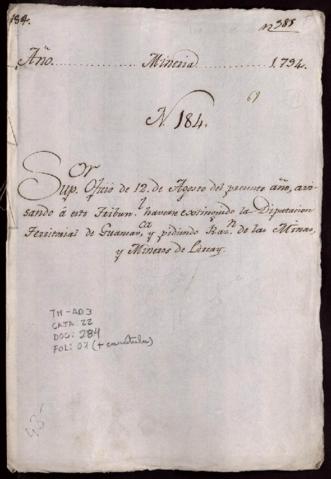 184. nº 388
Año............Mineria............1794.
61
N. 184.
Sup.or Oficio de 12. de Agosto del presente año, avi-
sando á este Tribun.l haverse extinguido la Diputacion
Territorial de Guaman.ca y pidiendo Raz.n de las Minas,
y Mineros de Lircay.
TM-AD3
CAJA: 22
DOC: 284
FOL: 07 (+ carátula)